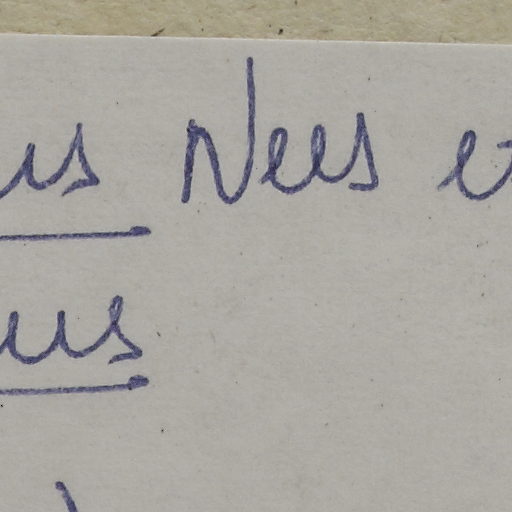 us Nees e
us